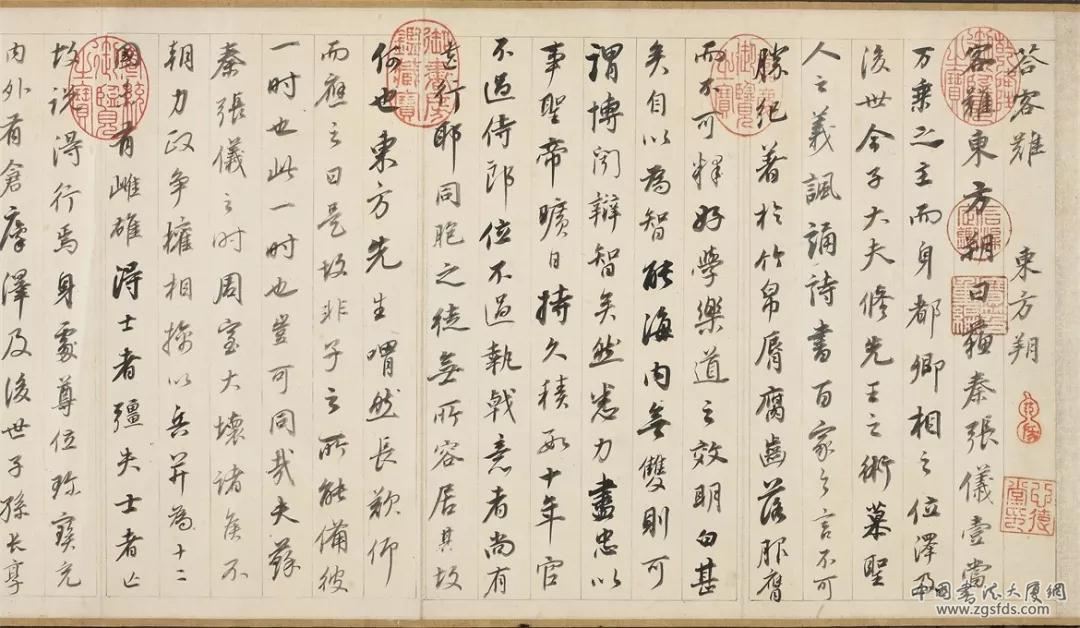 荅客難　東方朔
客難東方朔曰蘇秦張儀壹當
万乘之主而身都卿相之位澤及
後世今子大夫修先王之術慕聖
人之義諷誦詩書百家之言不可
勝紀著於竹帛脣腐齒落服膺
而不可釋好學樂道之效明白甚
矣自以為智能海内無雙則可
謂博聞辯智矣然悉力盡忠以
事聖帝曠日持久積數十年官
不過侍郎位不過執戟意者尚有
遺行耶同胞之徒無所容居其故
何也東方先生喟然長歎仰
而應之曰是故非子之所能備彼
一时也此一时也豈可同哉夫蘇
秦張儀之时周室大壞諸侯不
朝力政争權相擒以兵并為十二
國未有雌雄得士者彊失士者亡
故說得行焉身處尊位珍寶充
内外有倉廩澤及後世子孫长享
中國書法大厦網
www.zgsfds.com